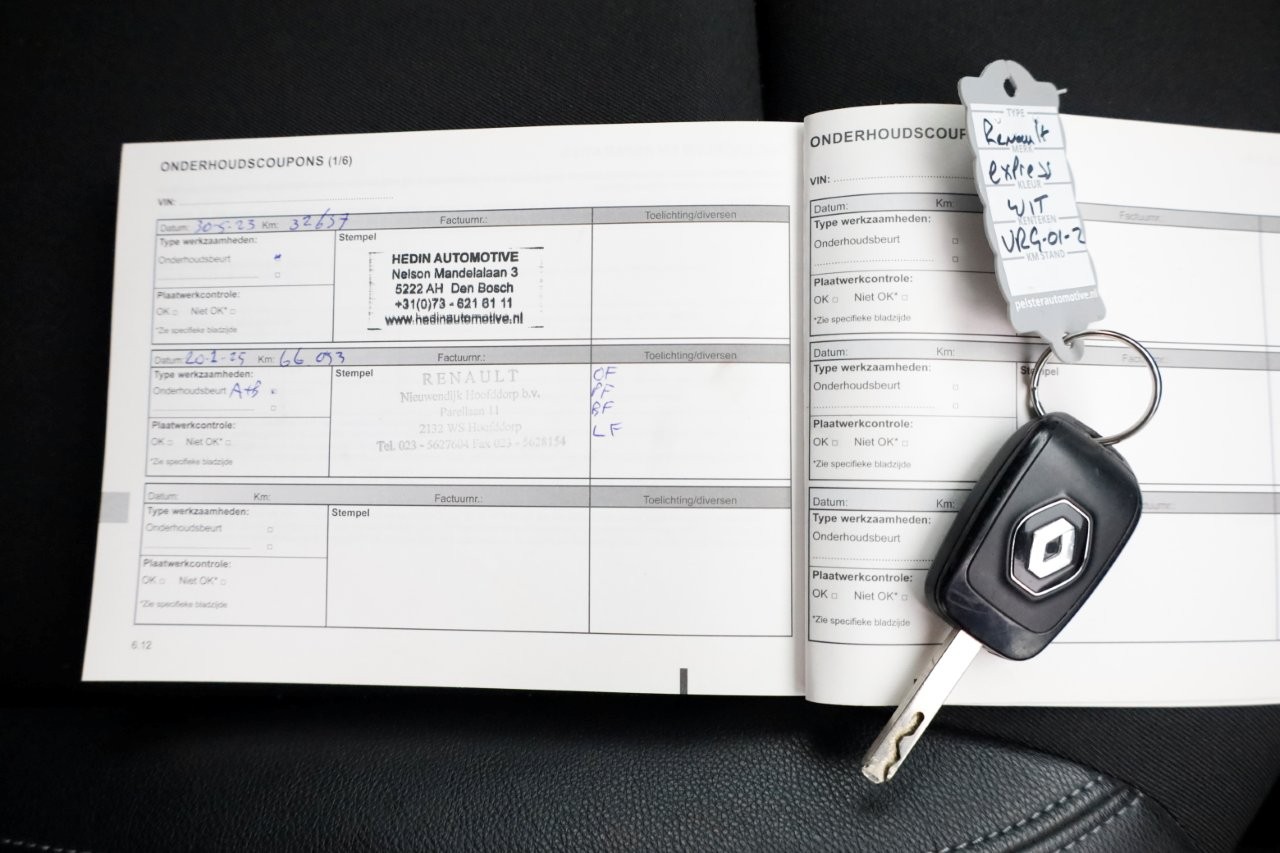 ONDERHOUDSCOUPONS (1/6)
VIN:
Datum: 30-5-23 Km: 32657 Factuurnr.: Toelichting/diversen
Type werkzaamheden: Stempel
Onderhoudsbeurt
HEDIN AUTOMOTIVE
Nelson Mandelalaan 3
5222 AH Den Bosch
+31(0)73 - 621 81 11
www.hedinautomotive.nl
Plaatwerkcontrole:
OK Niet OK*
*Zie specifieke bladzijde
Datum: 20-2-25 Km: 66 093 Factuurnr.: Toelichting/diversen
Type werkzaamheden: Stempel
Onderhoudsbeurt A+B
RENAULT
Nieuwendijk Hoofddorp b.v.
Parellaan 11
2132 WS Hoofddorp
Tel. 023 - 5627604 Fax 023 - 5628154
OF
PF
BF
LF
Plaatwerkcontrole:
OK Niet OK*
*Zie specifieke bladzijde
Datum: Km: Factuurnr.: Toelichting/diversen
Type werkzaamheden: Stempel
Onderhoudsbeurt
Plaatwerkcontrole:
OK Niet OK*
*Zie specifieke bladzijde
6.12
ONDERHOUDSCOUP
VIN:
Datum: Km: Factuurnr.
Type werkzaamheden:
Onderhoudsbeurt
Plaatwerkcontrole:
OK Niet OK*
*Zie specifieke bladzijde
Datum: Km: Factuurnr.:
Type werkzaamheden: Stempel
Onderhoudsbeurt
Plaatwerkcontrole:
OK Niet OK*
*Zie specifieke bladzijde
Datum: Km:
Type werkzaamheden:
Onderhoudsbeurt
Plaatwerkcontrole:
OK Niet OK*
*Zie specifieke bladzijde
TYPE
Renault
MERK
express
KLEUR
WIT
KENTEKEN
VRG-01-Z
KM STAND
peisterautomotive.nl